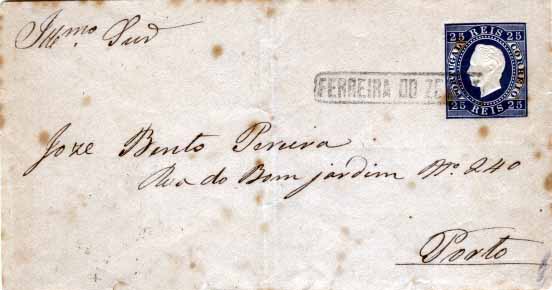 Illmo. Snr
25 REIS 25
PORTUGAL CORREIO
25 REIS 25
FERREIRA DO ZE
Joze Bento Pereira
Rua do Bom jardim No. 240
Porto